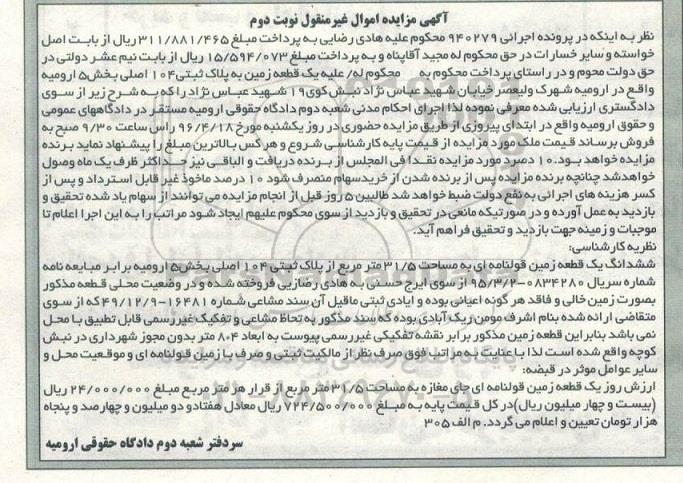 آگهی مزایده اموال غیرمنقول نوبت دوم
نظر به اینکه در پرونده اجرائی ۹۴۰۲۷۹ محکوم علیه هادی رضایی به پرداخت مبلغ ۳۱۱/۸۸۱/۴۶۵ ریال از بابت اصل
خواسته و سایر خسارات در حق محکوم له مجید آقاپناه و به پرداخت مبلغ ۱۵/۵۹۴/۰۷۳ ریال از بابت نیم عشر دولتی در
حق دولت محوم و در راستای پرداخت محکوم به محکوم له/ علیه یک قطعه زمین به پلاک ثبتی ۱۰۴ اصلی بخش ۵ ارومیه
واقع در ارومیه شهرک ولیعصر خیابان شهید عباس نژاد نبش کوی ۱۹ شهید عباس نژاد را که به شرح زیر از سوی
دادگستری ارزیابی شده معرفی نموده لذا اجرای احکام مدنی شعبه دوم دادگاه حقوقی ارومیه مستقر در دادگاههای عمومی
و حقوق ارومیه واقع در ابتدای پیروزی از طریق مزایده حضوری در روز یکشنبه مورخ ۹۶/۴/۱۸ راس ساعت ۹/۳۰ صبح به
فروش برساند قیمت ملک مورد مزایده از قیمت پایه کارشناسی شروع و هر کس بالاترین مبلغ را پیشنهاد نماید برنده
مزایده خواهد بود. ۱۰ درصد مورد مزایده نقدا فی المجلس از برنده دریافت و الباقی نیز حداکثر ظرف یک ماه وصول
خواهد شد چنانچه برنده مزایده پس از برنده شدن از خرید سهام منصرف شود ۱۰ درصد ماخوذ غیر قابل استرداد و پس از
کسر هزینه های اجرائی به نفع دولت ضبط خواهد شد طالبین ۵ روز قبل از انجام مزایده می توانند از سهام یاد شده تحقیق و
بازدید به عمل آورده و در صورتیکه مانعی در تحقیق و بازدید از سوی محکوم علیهم ایجاد شود مراتب را به این اجرا اعلام تا
موجبات و زمینه جهت بازدید و تحقیق فراهم آید.
نظریه کارشناسی:
ششدانگ یک قطعه زمین قولنامه ای به مساحت ۳۱/۵ متر مربع از پلاک ثبتی ۱۰۴ اصلی بخش ۵ ارومیه برابر مبایعه نامه
شماره سریال ۰۸۳۴۲۸۰-۹۵/۳/۲ از سوی ایرج حسنی به هادی رضاریی فروخته شده و در وضعیت محلی قطعه مذکور
بصورت زمین خالی و فاقد هر گونه اعیانی بوده و ایادی ثبتی ماقبل آن سند مشاعی شماره ۱۶۴۸۱-۴۹/۱۲/۹ که از سوی
متقاضی ارائه شده بنام اشرف مومن ریک آبادی بوده که سند مذکور به لحاظ مشاعی و تفکیک غیر رسمی قابل تطبیق با محل
نمی باشد بنابراین قطعه زمین مذکور برابر نقشه تفکیکی غیر رسمی پیوست به ابعاد ۴*۸ متر بدون مجوز شهرداری در نبش
کوچه واقع شده است لذا با عنایت به مراتب فوق صرف نظر از مالکیت ثبتی و صرف با زمین قولنامه ای و موقعیت محل و
سایر عوامل موثر در قبضه:
ارزش روز یک قطعه زمین قولنامه ای جای مغازه به مساحت ۳۱/۵ متر مربع از قرار هر متر مربع مبلغ ۲۴/۰۰۰/۰۰۰ ریال
(بیست و چهار میلیون ریال) در کل قیمت پایه به مبلغ ۷۲۴/۵۰۰/۰۰۰ ریال معادل هفتاد و دو میلیون و چهارصد و پنجاه
هزار تومان تعیین و اعلام می گردد. م الف ۳۰۵
سردفتر شعبه دوم دادگاه حقوقی ارومیه